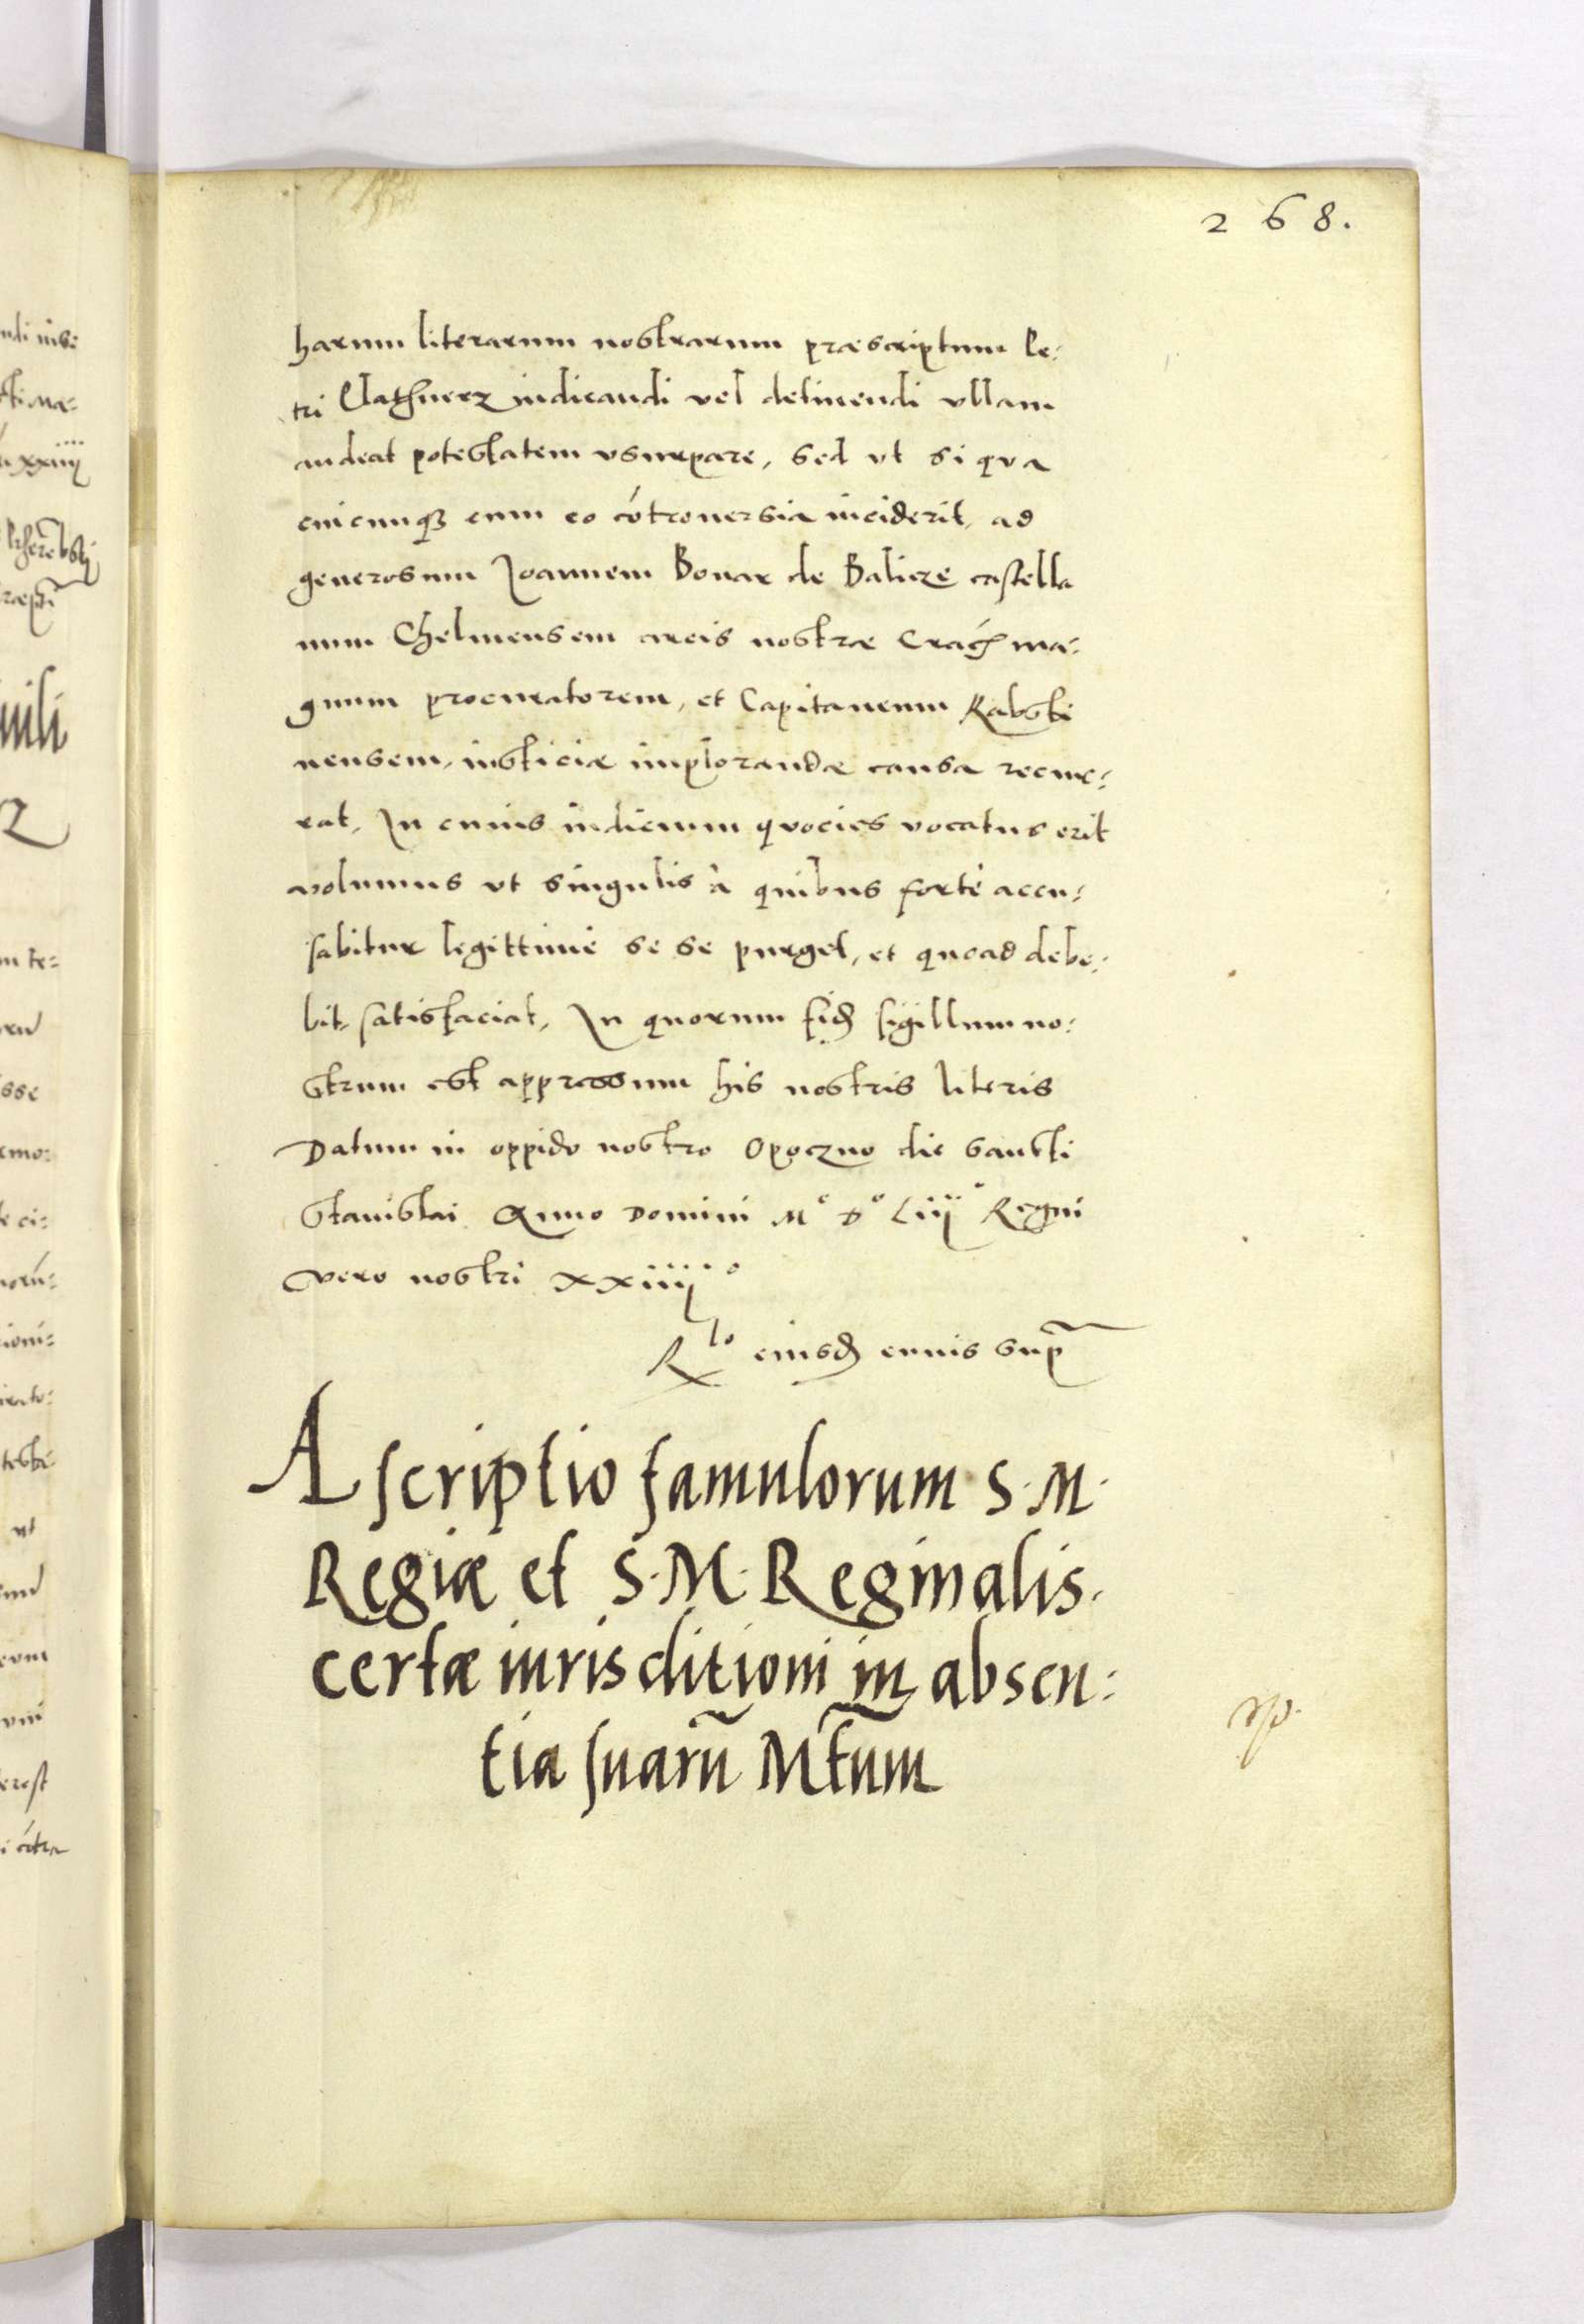 268.
harum literarum nostrarum præscriptum Pe:
tri iudicandi vel detinendi vllam
audeat potestatem vsurpare, sed vt si qua
cuicunqꝫ cum eo cótrouersia inciderit, ad
generosum Joannem Bonar de Balicze castella
num Chelmensem arcis nostræ Crać ma:
gnum procuratorem, et Capitaneum Rabsti
nensem, iusticiæ implorandæ causa recur:
rat, In cuius iudicium quocies vocatus erit
volumus vt singulis à quibus forté accu:
sabitur legittimé se se purget, et quoad debe:
bit, satisfaciat, In quorum fid sigillum no:
strum est appressum his nostris literis
Datum in oppido nostro Opoczno die Sancti
Stanislai Anno Domini Mº Dº Liijº Regni
vero nostri xxiiijº
Rlo eiusd cuius sup
Ascriptio famulorum S. M.
Regiæ et S. M. Reginalis.
certæ iurisditioni in absen:
tia suarũ Mtum